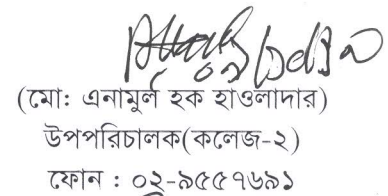 (মো: এনামুল হক হাওলাদার)
উপপরিচালক(কলেজ-২)
ফোন : ০২-৯৫৫৭৬৯১